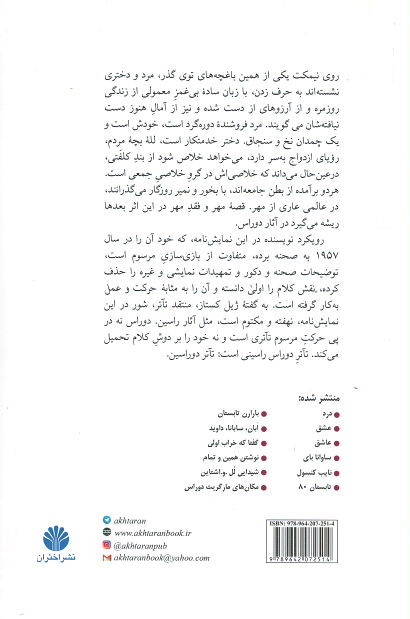 روی نیمکت یکی از همین باغچه‌های توی گذر، مرد و دختری
نشسته‌اند به حرف زدن، با زبان سادهٔ بی‌غمزِ معمولی از زندگی
روزمره و از آرزوهای از دست شده و نیز از آمالِ هنوز دست
نیافته‌شان می گویند. مرد فروشندهٔ دوره‌گرد است، خودش است و
یک چمدان نخ و سنجاق. دختر خدمتکار است، للهٔ بچهٔ مردم،
رؤیای ازدواج به‌سر دارد، می‌خواهد خلاص شود از بندِ کلفتی،
درعین‌حال می‌داند که خلاصی‌اش در گروِ خلاصیِ جمعی است.
هردو برآمده از بطن جامعه‌اند، با بخور و نمیر روزگار می‌گذرانند،
در عالمی عاری از مهر. قصهٔ مهر و فقدِ مهر در این اثر بعدها
ریشه می‌گیرد در آثار دوراس.
رویکرد نویسنده در این نمایش‌نامه، که خود آن را در سال
۱۹۵۷ به صحنه برده، متفاوت از بازی‌سازیِ مرسوم است،
توضیحات صحنه و دکور و تمهیدات نمایشی و غیره را حذف
کرده، نقش کلام را اولیٰ دانسته و آن را به مثابهٔ حرکت و عمل
به‌کار گرفته است. به گفتهٔ ژیل کستاز، منتقد تآتر، شور در این
نمایش‌نامه، نهفته و مکتوم است، مثل آثار راسین. دوراس نه در
پی حرکتِ مرسوم تآتری است و نه خود را بر دوشِ کلام تحمیل
می‌کند. تآترِ دوراس راسینی است: تآتر دوراسین.
منتشر شده:
درد
عشق
عاشق
ساوانا بای
نایب کنسول
تابستان ۸۰
باران تابستان
ابان، سابانا، داوید
گفتا که خراب اولی
نوشتن همین و تمام
شیدایی لُل .و.اشتاین
مکان‌های مارگریت دوراس
akhtaran
www.akhtaranbook.ir
@akhtaranpub
akhtaranbook@yahoo.com
ISBN: 978-964-207-251-4
9 789642 072514
نشر اختران